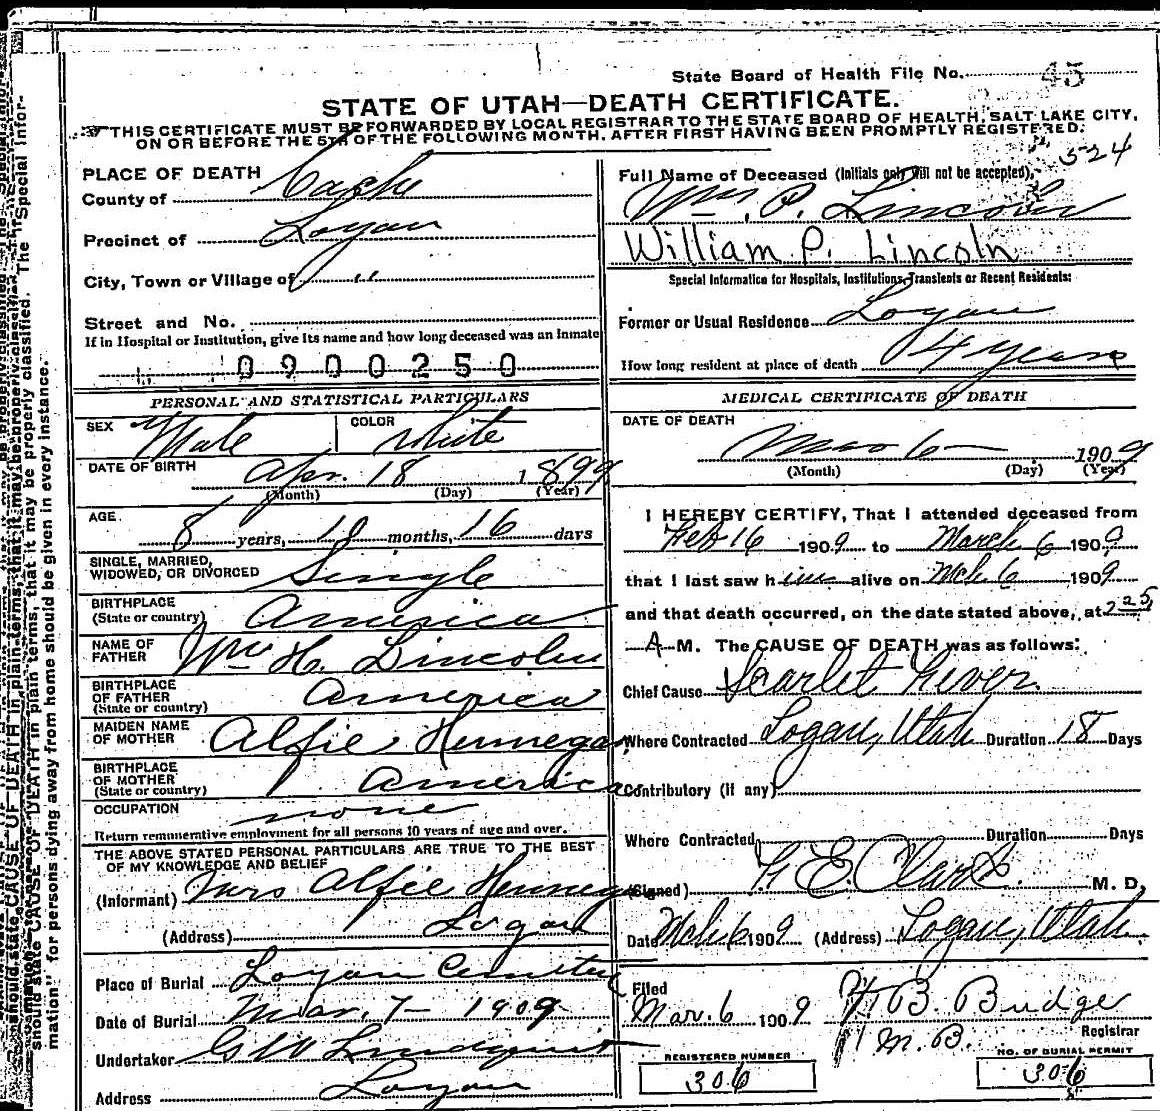 State Board of Health File No. 45
STATE OF UTAH—DEATH CERTIFICATE.
THIS CERTIFICATE MUST BE FORWARDED BY LOCAL REGISTRAR TO THE STATE BOARD OF HEALTH, SALT LAKE CITY,
ON OR BEFORE THE 5TH OF THE FOLLOWING MONTH, AFTER FIRST HAVING BEEN PROMPTLY REGISTERED.
524
PLACE OF DEATH
County of Cache
Precinct of Logan
City, Town or Village of "
Street and No.
If in Hospital or Institution, give its name and how long deceased was an Inmate
0900250
Full Name of Deceased (Initials only will not be accepted),
Wm. P. Lincoln
William P. Lincoln
Special Information for Hospitals, Institutions, Transients or Recent Residents:
Former or Usual Residence Logan
How long resident at place of death 4 years
PERSONAL AND STATISTICAL PARTICULARS
SEX Male COLOR White
DATE OF BIRTH Apr. 18 1899
(Month) (Day) (Year)
AGE
8 years, 10 months, 16 days
SINGLE, MARRIED,
WIDOWED, OR DIVORCED Single
BIRTHPLACE
(State or country) America
NAME OF
FATHER Wm H. Lincoln
BIRTHPLACE
OF FATHER America
(State or country)
MAIDEN NAME
OF MOTHER Alfie Hennegan
BIRTHPLACE
OF MOTHER America
(State or country)
OCCUPATION none
Return remunerative employment for all persons 10 years of age and over.
THE ABOVE STATED PERSONAL PARTICULARS ARE TRUE TO THE BEST
OF MY KNOWLEDGE AND BELIEF
(Informant) Mrs Alfie Hennegan
(Address) Logan
Place of Burial Logan Cemetery
Date of Burial Mar. 7 - 1909
Undertaker G W Lindquist
Address Logan
MEDICAL CERTIFICATE OF DEATH
DATE OF DEATH
Mar 6 1909
(Month) (Day) (Year)
I HEREBY CERTIFY, That I attended deceased from
Feb 16 1909 to March 6 1909
that I last saw him alive on Mch 6 1909
and that death occurred, on the date stated above, at 2 25
A M. The CAUSE OF DEATH was as follows:
Chief Cause Scarlet Fever
Where Contracted Logan, Utah Duration 18 Days
Contributory (if any)
Where Contracted Duration Days
(Signed) G E. Clark M. D.
Date Mch 6 1909 (Address) Logan, Utah
Filed
Mar. 6 1909 B. Budge
Registrar
M. B.
REGISTERED NUMBER
306
NO. OF BURIAL PERMIT
306
should state CAUSE OF DEATH in plain terms, that it may be properly classified. The "Special Infor-
mation" for persons dying away from home should be given in every instance.